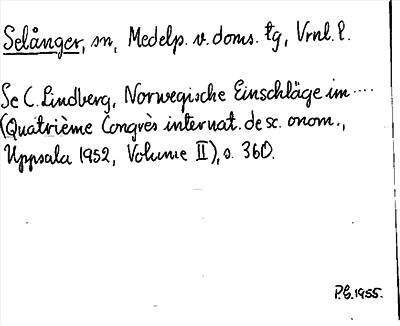 Selånger, sn, Medelp. v. doms. tg, Vrnl. l.
Se C. Lindberg, Norwegische Einschläge im ....
(Quatrième Congrès internat. de sc. onom.,
Uppsala 1952, Volume II), s. 360.
P.G. 1955.